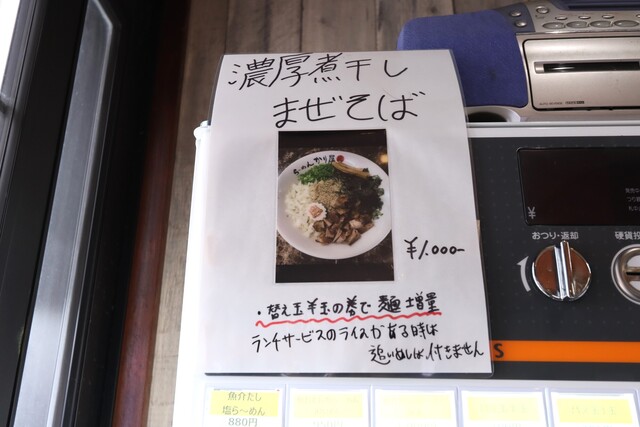 濃厚煮干し
まぜそば
¥1.000-
・替え玉半玉の券で麺増量
ランチサービスのライスがある時は
追いめしは、付きません
¥
おつり・返却
硬貨投
S
魚介だし
塩らーめん
880円